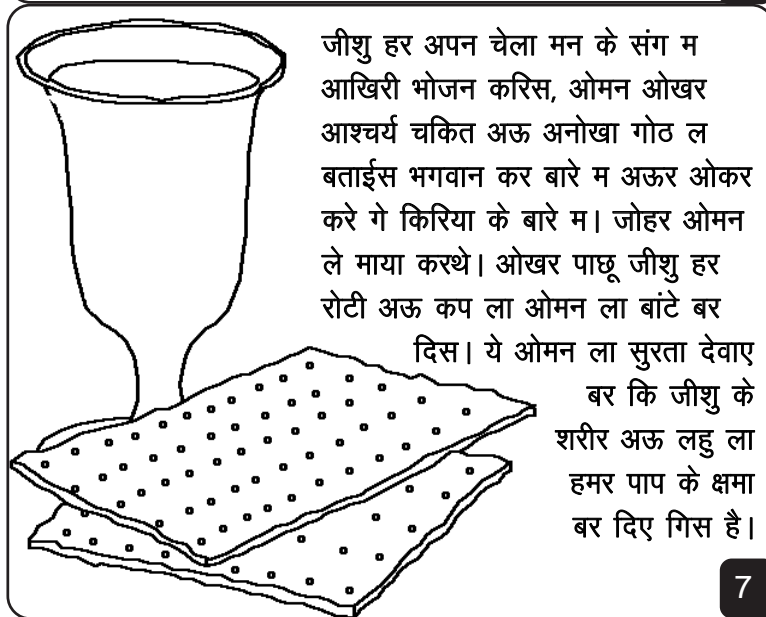 जीशु हर अपन चेला मन के संग म
आखिरी भोजन करिस, ओमन ओखर
आश्चर्य चकित अऊ अनोखा गोठ ल
बताईस भगवान कर बारे म अऊर ओकर
करे गे किरिया के बारे म। जोहर ओमन
ले माया करथे। ओखर पाछू जीशु हर
रोटी अऊ कप ला ओमन ला बांटे बर
दिस। ये ओमन ला सुरता देवाए
बर कि जीशु के
शरीर अऊ लहु ला
हमर पाप के क्षमा
बर दिए गिस है।
7